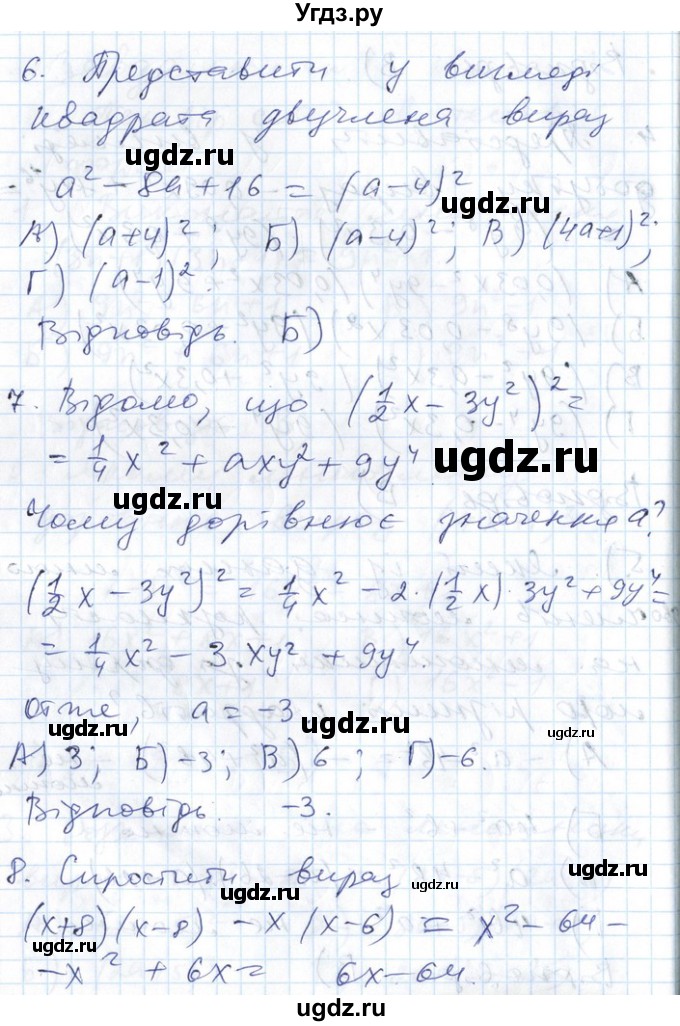 Угдз.ру
6. Представити у вигляді
квадрата двучлена вираз
ugdz.ru ugdz.ru
a² - 8a + 16 = (a-4)²
А) (a+4)²; Б) (a-4)²; В) (4a+1)²;
Г) (a-1)².
ugdz.ru
Відповідь. Б)
7. Відомо, що (1/2 x - 3y²)² =
= 1/4 x² + axy² + 9y⁴
ugdz.ru
Чому дорівнює значення a?
(1/2 x - 3y²)² = 1/4 x² - 2·(1/2 x)·3y² + 9y⁴ =
ugdz.ru
= 1/4 x² - 3·xy² + 9y⁴.
отже, a = -3
ugdz.ru ugdz.ru
А) 3; Б) -3; В) 6; Г) -6.
Відповідь. -3.
8. Спростити вираз
ugdz.ru ugdz.ru
(x+8)(x-8) - x(x-6) = x² - 64 -
- x² + 6x = 6x - 64.
ugdz.ru ugdz.ru
ugdz.ru